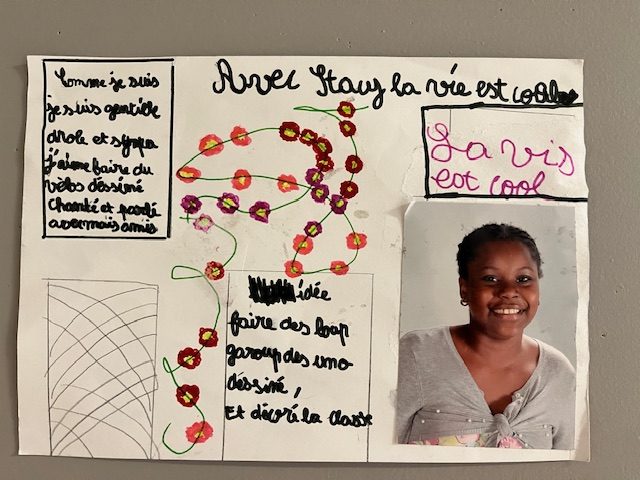 Avec Stacy la vie est cool
Comme je suis
je suis gentille
drole et sympa
j'aime faire du
vélos déssiné
chanté et parlé
avec mais amis
La vis
est cool
idée
faire des loup
garoup des uno
déssiné,
Et décoré la classe